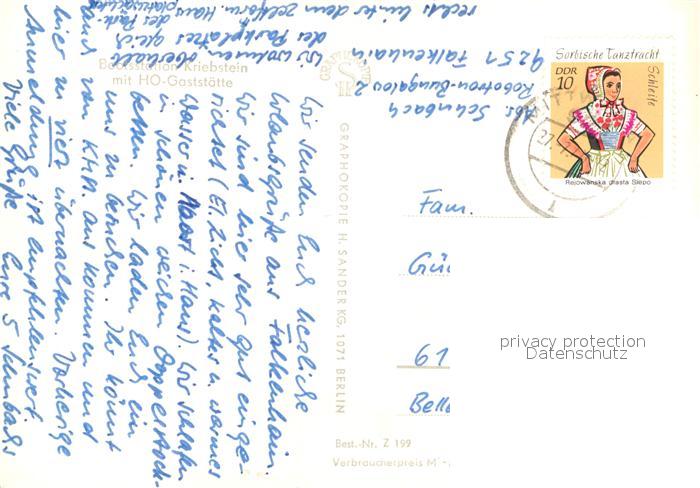 Bootsstation Kriebstein
mit HO-Gaststätte
Wir senden Euch herzliche
Urlaubsgrüße aus Falkenhain.
Wir sind hier sehr gut einge-
richtet (El. Licht, kaltes u. warmes
Wasser i. Haus). Wir schlafen
in schönen weichen Doppelstock-
betten. Wir laden Euch ein
uns zu besuchen. Ihr könnt
auch von aus kommen und
hier zu vier übernachten. Vorherige
Anmeldung ist empfehlenswert
Viele Grüße Eure 5 Schubachs
Wir wohnen oberhalb
des Parkplatzes gleich
rechts hinter dem Haus des Park-
platzwächters
Abs. Schubach
Robotron-Bungalow 2
9251 Falkenhain
GRAPHOKOPIE H. SANDER KG, 1071 BERLIN
Sorbische Tanztracht
Schleife
DDR
10
Rejowanska drasta Slepo
MITTW
27.
1
Fam.
Gün
61
Belle
privacy protection
Datenschutz
Best.-Nr. Z 199
Verbraucherpreis M -,